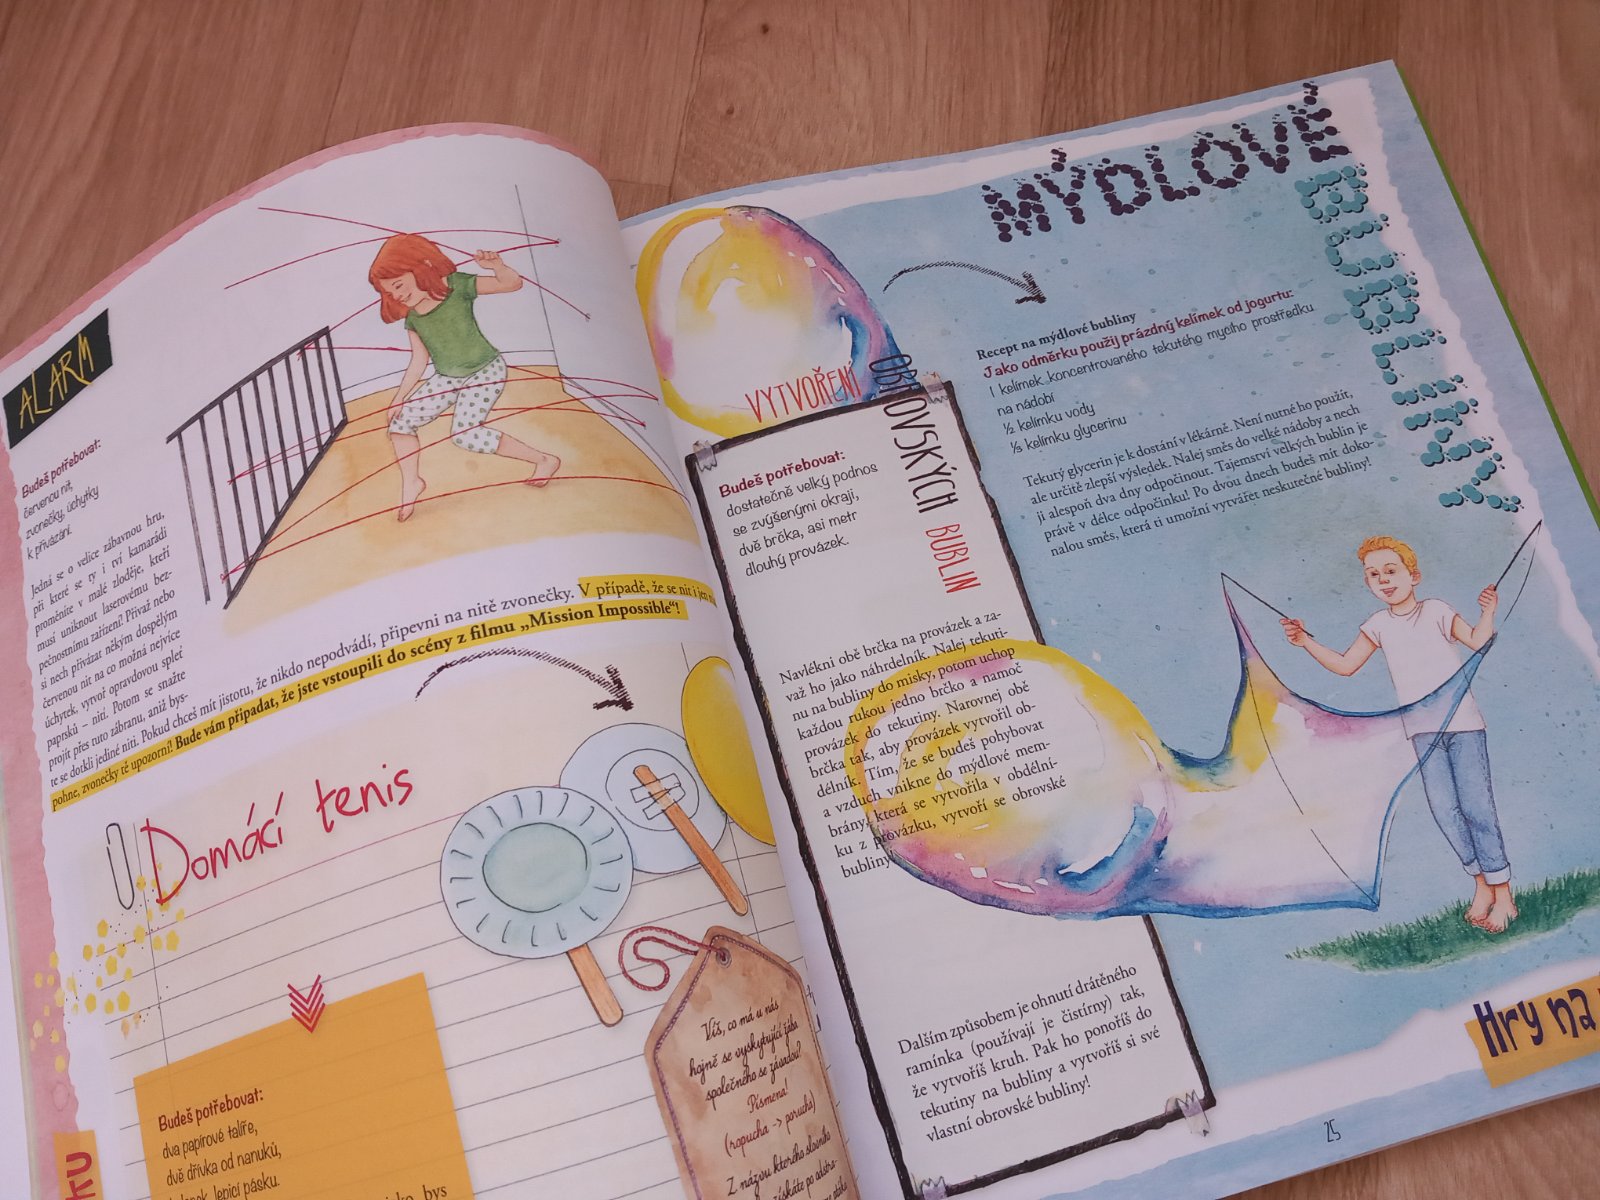 ALARM
Budeš potřebovat:
červenou nit,
zvonečky, úchytky
k přivázání.
Jedná se o velice zábavnou hru,
při které se ty i tví kamarádi
proměníte v malé zloděje, kteří
musí uniknout laserovému bez-
pečnostnímu zařízení! Přivaž nebo
si nech přivázat někým dospělým
červenou nit na co možná nejvíce
úchytek, vytvoř opravdovou spleť
paprsků – nití. Potom se snažte
projít přes tuto zábranu, aniž bys-
te se dotkli jediné niti. Pokud chceš mít jistotu, že nikdo nepodvádí, připevni na nitě zvonečky. V případě, že se nit i jen
pohne, zvonečky tě upozorní! Bude vám připadat, že jste vstoupili do scény z filmu „Mission Impossible“!
Domácí tenis
Budeš potřebovat:
dva papírové talíře,
dvě dřívka od nanuků,
lepicí pásku.
bys
Víš, co má u nás
hojně se vyskytující žába
společného se závadou?
Písmena!
(ropucha -> porucha)
Z názvu kterého
získáte po
ku
MÝDLOVÉ
BUBLINY
Recept na mýdlové bubliny
Jako odměrku použij prázdný kelímek od jogurtu:
1 kelímek koncentrovaného tekutého mycího prostředku
na nádobí
½ kelímku vody
⅓ kelímku glycerinu
Tekutý glycerin je k dostání v lékárně. Není nutné ho použít,
ale určitě zlepší výsledek. Nalej směs do velké nádoby a nech
ji alespoň dva dny odpočinout. Tajemství velkých bublin je
právě v délce odpočinku! Po dvou dnech budeš mít doko-
nalou směs, která ti umožní vytvářet neskutečné bubliny!
VYTVOŘENÍ OBROVSKÝCH BUBLIN
Budeš potřebovat:
dostatečně velký podnos
se zvýšenými okraji,
dvě brčka, asi metr
dlouhý provázek.
Navlékni obě brčka na provázek a za-
važ ho jako náhrdelník. Nalej tekuti-
nu na bubliny do misky, potom uchop
každou rukou jedno brčko a namoč
provázek do tekutiny. Narovnej obě
brčka tak, aby provázek vytvořil ob-
délník. Tím, že se budeš pohybovat
a vzduch vnikne do mýdlové mem-
brány, která se vytvořila v obdélní-
ku z provázku, vytvoří se obrovské
bubliny!
Dalším způsobem je ohnutí drátěného
ramínka (používají je čistírny) tak,
že vytvoříš kruh. Pak ho ponoříš do
tekutiny na bubliny a vytvoříš si své
vlastní obrovské bubliny!
Hry na
25